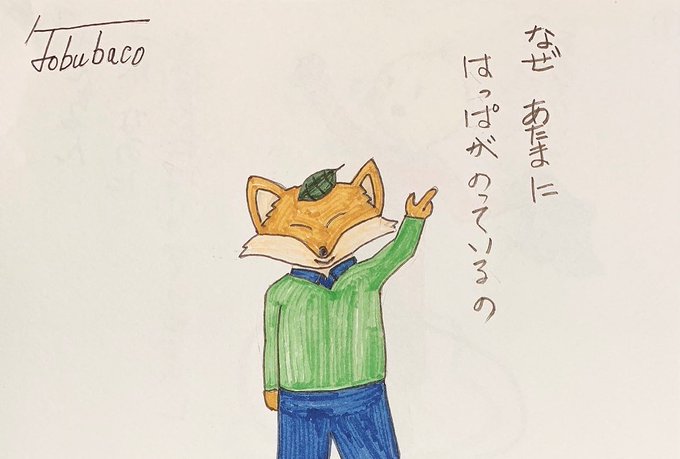 Tobubaco
なぜ あたまに
はっぱが のっているの